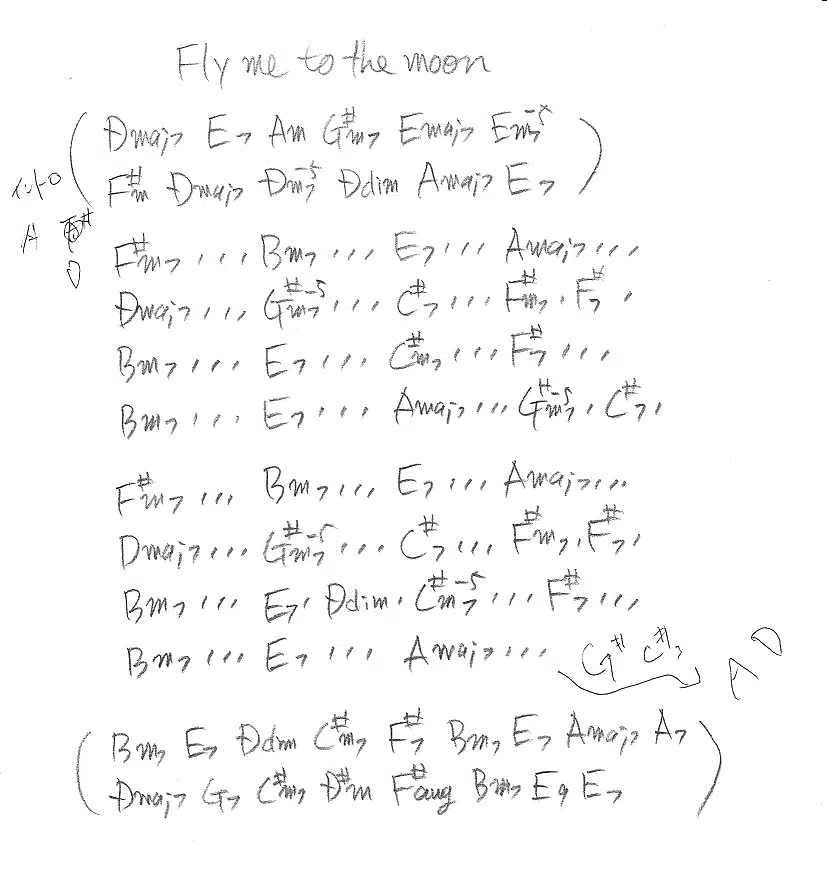 Fly me to the moon
( Dmaj7 E7 Am G#m7 Emaj7 Em7-5
F#m Dmaj7 Dm7-5 Ddim Amaj7 E7 )
イントロ
A
D
F#m7 ′ ′ ′ Bm7 ′ ′ ′ E7 ′ ′ ′ Amaj7 ′ ′ ′
Dmaj7 ′ ′ ′ G#m7-5 ′ ′ ′ C#7 ′ ′ ′ F#m7 ′ F#7 ′
Bm7 ′ ′ ′ E7 ′ ′ ′ C#m7 ′ ′ ′ F#7 ′ ′ ′
Bm7 ′ ′ ′ E7 ′ ′ ′ Amaj7 ′ ′ ′ G#m7-5 ′ C#7 ′
F#m7 ′ ′ ′ Bm7 ′ ′ ′ E7 ′ ′ ′ Amaj7 ′ ′ ′
Dmaj7 ′ ′ ′ G#m7-5 ′ ′ ′ C#7 ′ ′ ′ F#m7 ′ F#7 ′
Bm7 ′ ′ ′ E7 ′ Ddim ′ C#m7-5 ′ ′ ′ F#7 ′ ′ ′
Bm7 ′ ′ ′ E7 ′ ′ ′ Amaj7 ′ ′ ′ G# C#7 A D
( Bm7 E7 Ddim C#m7 F#7 Bm7 E7 Amaj7 A7
Dmaj7 G7 C#m7 D#m F#aug Bm7 E9 E7 )